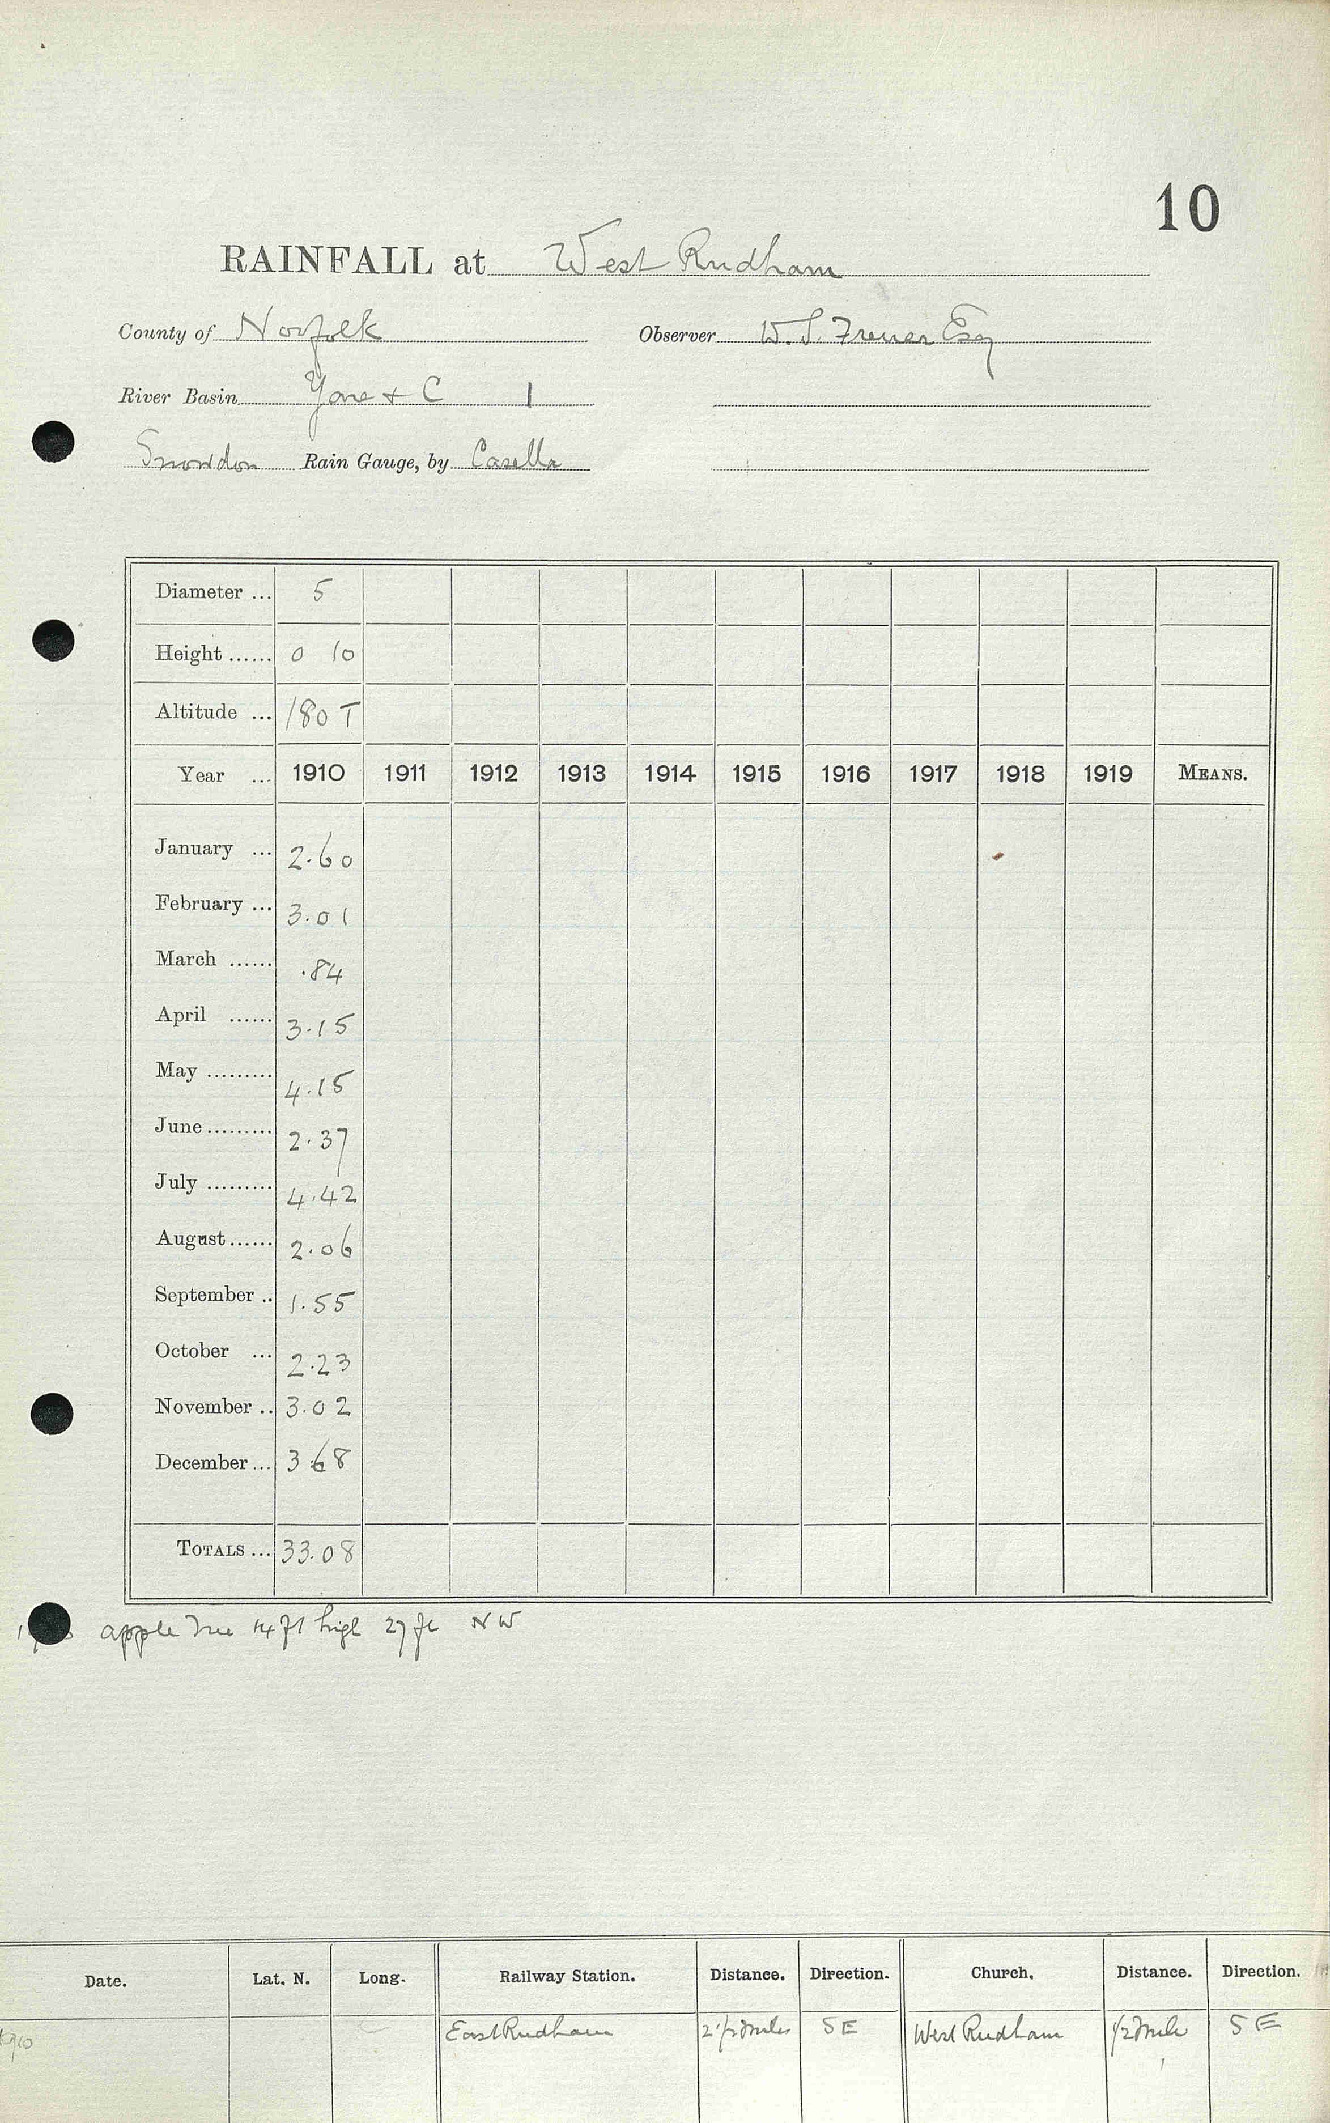 10
RAINFALL at West Rudham
County of Norfolk Observer W. S. Esq
River Basin Yare & C 1
Snowdon Rain Gauge, by Casella
Diameter ... 5
Height ...... 0 10
Altitude ... 180 T
Year ... 1910 1911 1912 1913 1914 1915 1916 1917 1918 1919 MEANS.
January ... 2.60
February ... 3.01
March ...... .84
April ...... 3.15
May ......... 4.15
June ......... 2.37
July ......... 4.42
August ...... 2.06
September .. 1.55
October ... 2.23
November .. 3.02
December ... 3.68
TOTALS ... 33.08
apple Tree 14 ft high 27 ft NW
Date. Lat. N. Long. Railway Station. Distance. Direction. Church. Distance. Direction.
East Rudham 2 1/2 miles SE West Rudham 1/2 mile SE